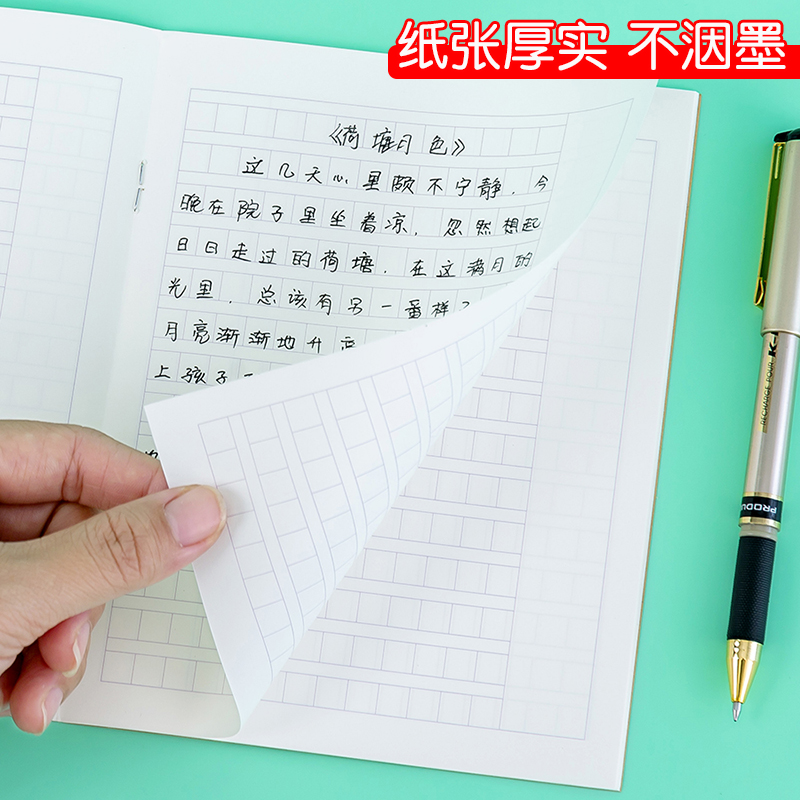 纸张厚实 不洇墨
《荷塘月色》
这几天心里颇不宁静．今
晚在院子里坐着凉．忽然想起
日日走过的荷塘．在这满月的
光里．总该有另一番样
月亮渐渐地升
上孩子
RECHARGE POUR K
PRODU